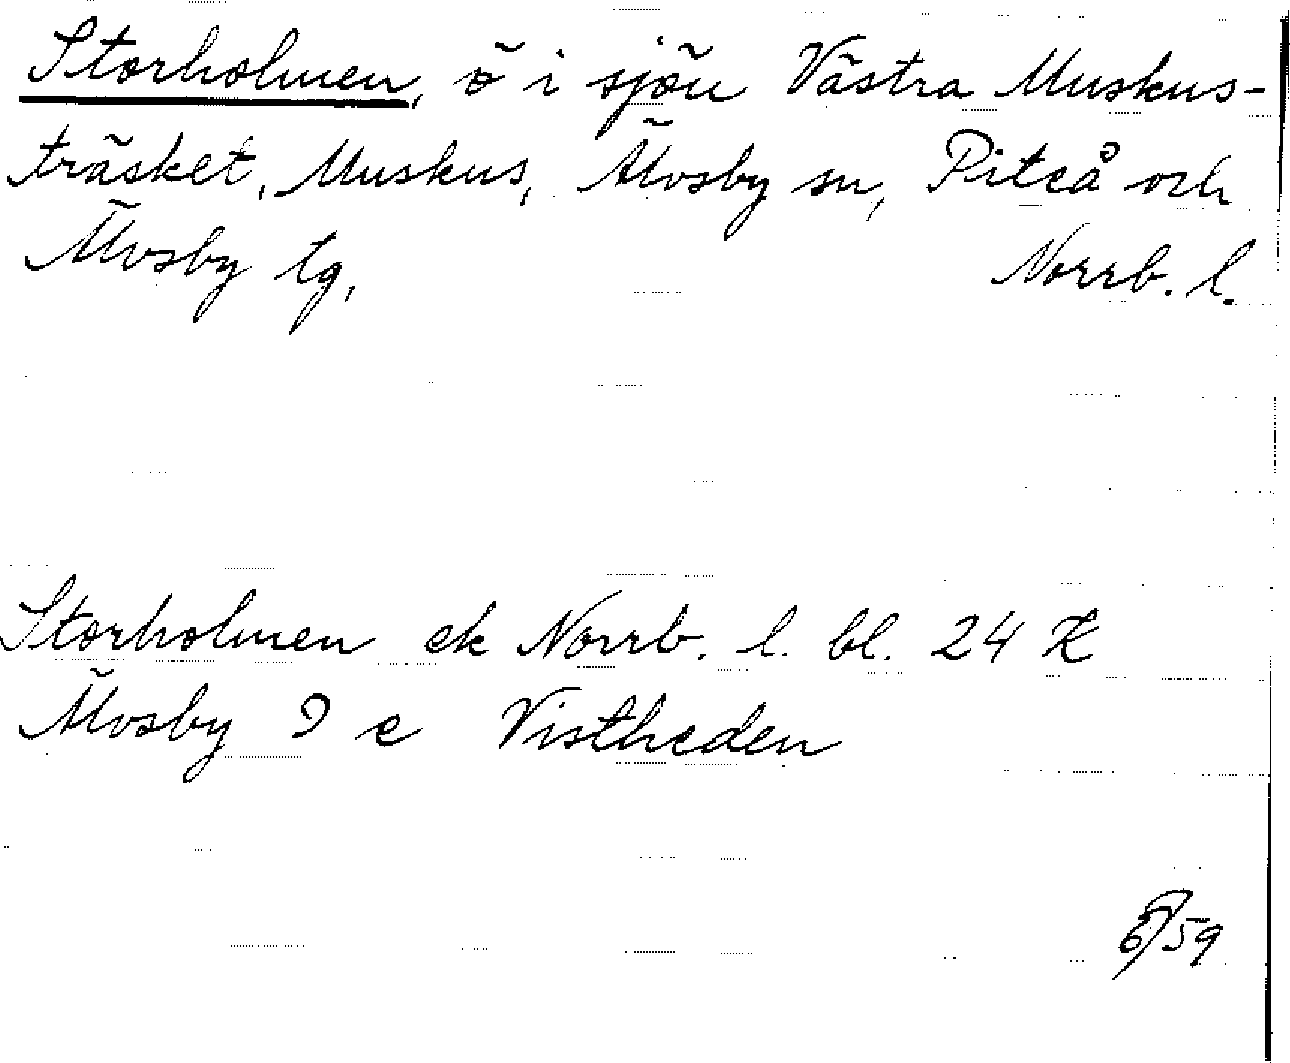 Storholmen, ö i sjön Västra Muskus-
träsket, Muskus, Älvsby sn, Piteå och
Älvsby tg, Norrb. l.
Storholmen ek Norrb. l. bl. 24 K
Älvsby 9 e Vistheden
59